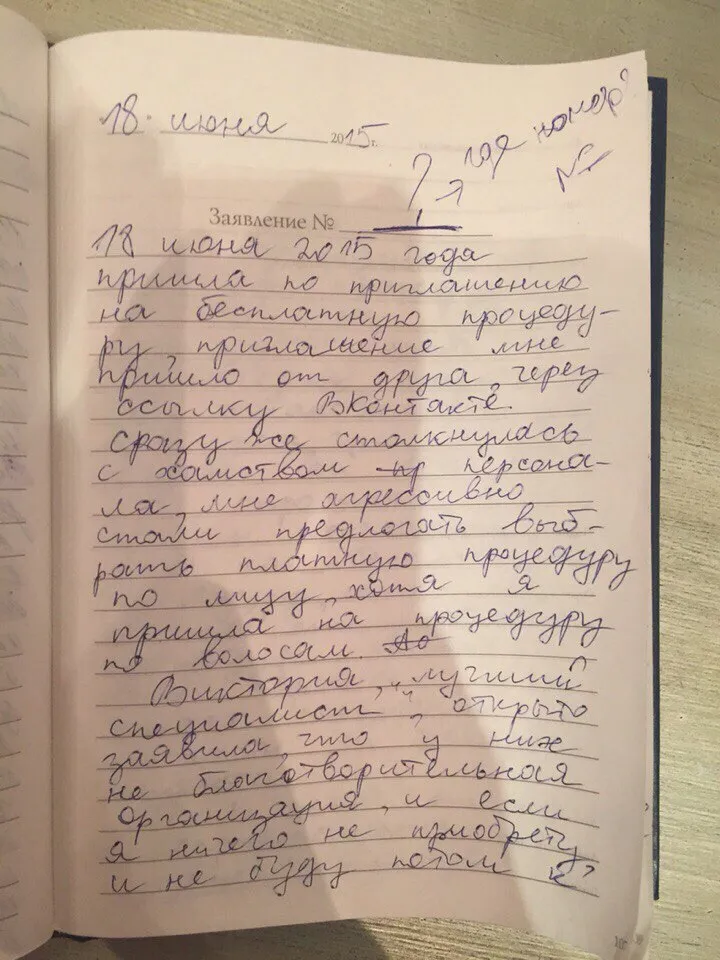 18 июня 2015 г.
? 1 где номер?
№
Заявление № 1
18 июня 2015 года
пришла по приглашению
на бесплатную процеду-
ру, приглашение мне
пришло от друга, через
ссылку ВКонтакте.
Сразу же столкнулась
с хамством персона-
ла, мне агрессивно
стали предлогать выб-
рать платную процедуру
по лицу, хотя я
пришла на процедуру
по волосам.
Виктория, „лучший
специалист", открыто
заявила, что у них
не благотворительная
организация, и если
я ничего не приобрету
и не буду потом к